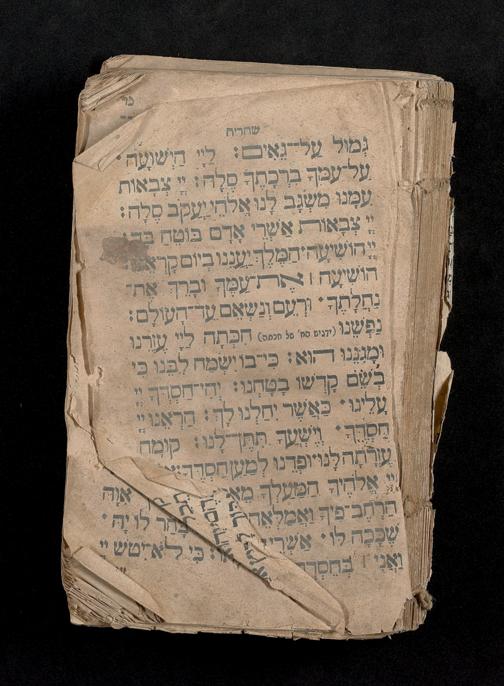 שחרית
גְּמוּל עַל־גֵּאִים: לַיְיָ הַיְשׁוּעָה·
עַל־עַמְּךָ בִרְכָתֶךָ סֶּלָה: יְיָ צְבָאוֹת
עִמָּנוּ מִשְׂגָּב לָנוּ אֱלֹהֵי יַעֲקֹב סֶלָה:
יְיָ צְבָאוֹת אַשְׁרֵי אָדָם בּוֹטֵחַ בָּךְ:
יְיָ הוֹשִׁיעָה הַמֶּלֶךְ יַעֲנֵנוּ בְיוֹם קָרְאֵנוּ
הוֹשִׁיעָה ׀ אֶת־עַמֶּךָ וּבָרֵךְ אֶת־
נַחֲלָתֶךָ· וּרְעֵם וְנַשְּׂאֵם עַד־הָעוֹלָם:
נַפְשֵׁנוּ חִכְּתָה לַיְיָ עֶזְרֵנוּ
וּמָגִנֵּנוּ הוּא: כִּי־בוֹ יִשְׂמַח לִבֵּנוּ כִּי
בְשֵׁם קָדְשׁוֹ בָטָחְנוּ: יְהִי־חַסְדְּךָ יְיָ
עָלֵינוּ· כַּאֲשֶׁר יִחַלְנוּ לָךְ: הַרְאֵנוּ יְיָ
חַסְדֶּךָ· וְיֶשְׁעֲךָ תִּתֶּן־לָנוּ: קוּמָה
עֶזְרָתָה לָּנוּ וּפְדֵנוּ לְמַעַן חַסְדֶּךָ:
יְיָ אֱלֹהֶיךָ הַמַּעַלְךָ
הַרְחֶב־פִּיךָ וַאֲמַלְאֵהוּ
שֶׁכָּכָה לּוֹ· אַשְׁרֵי
וַאֲנִי ׀ בְּחַסְדְּךָ